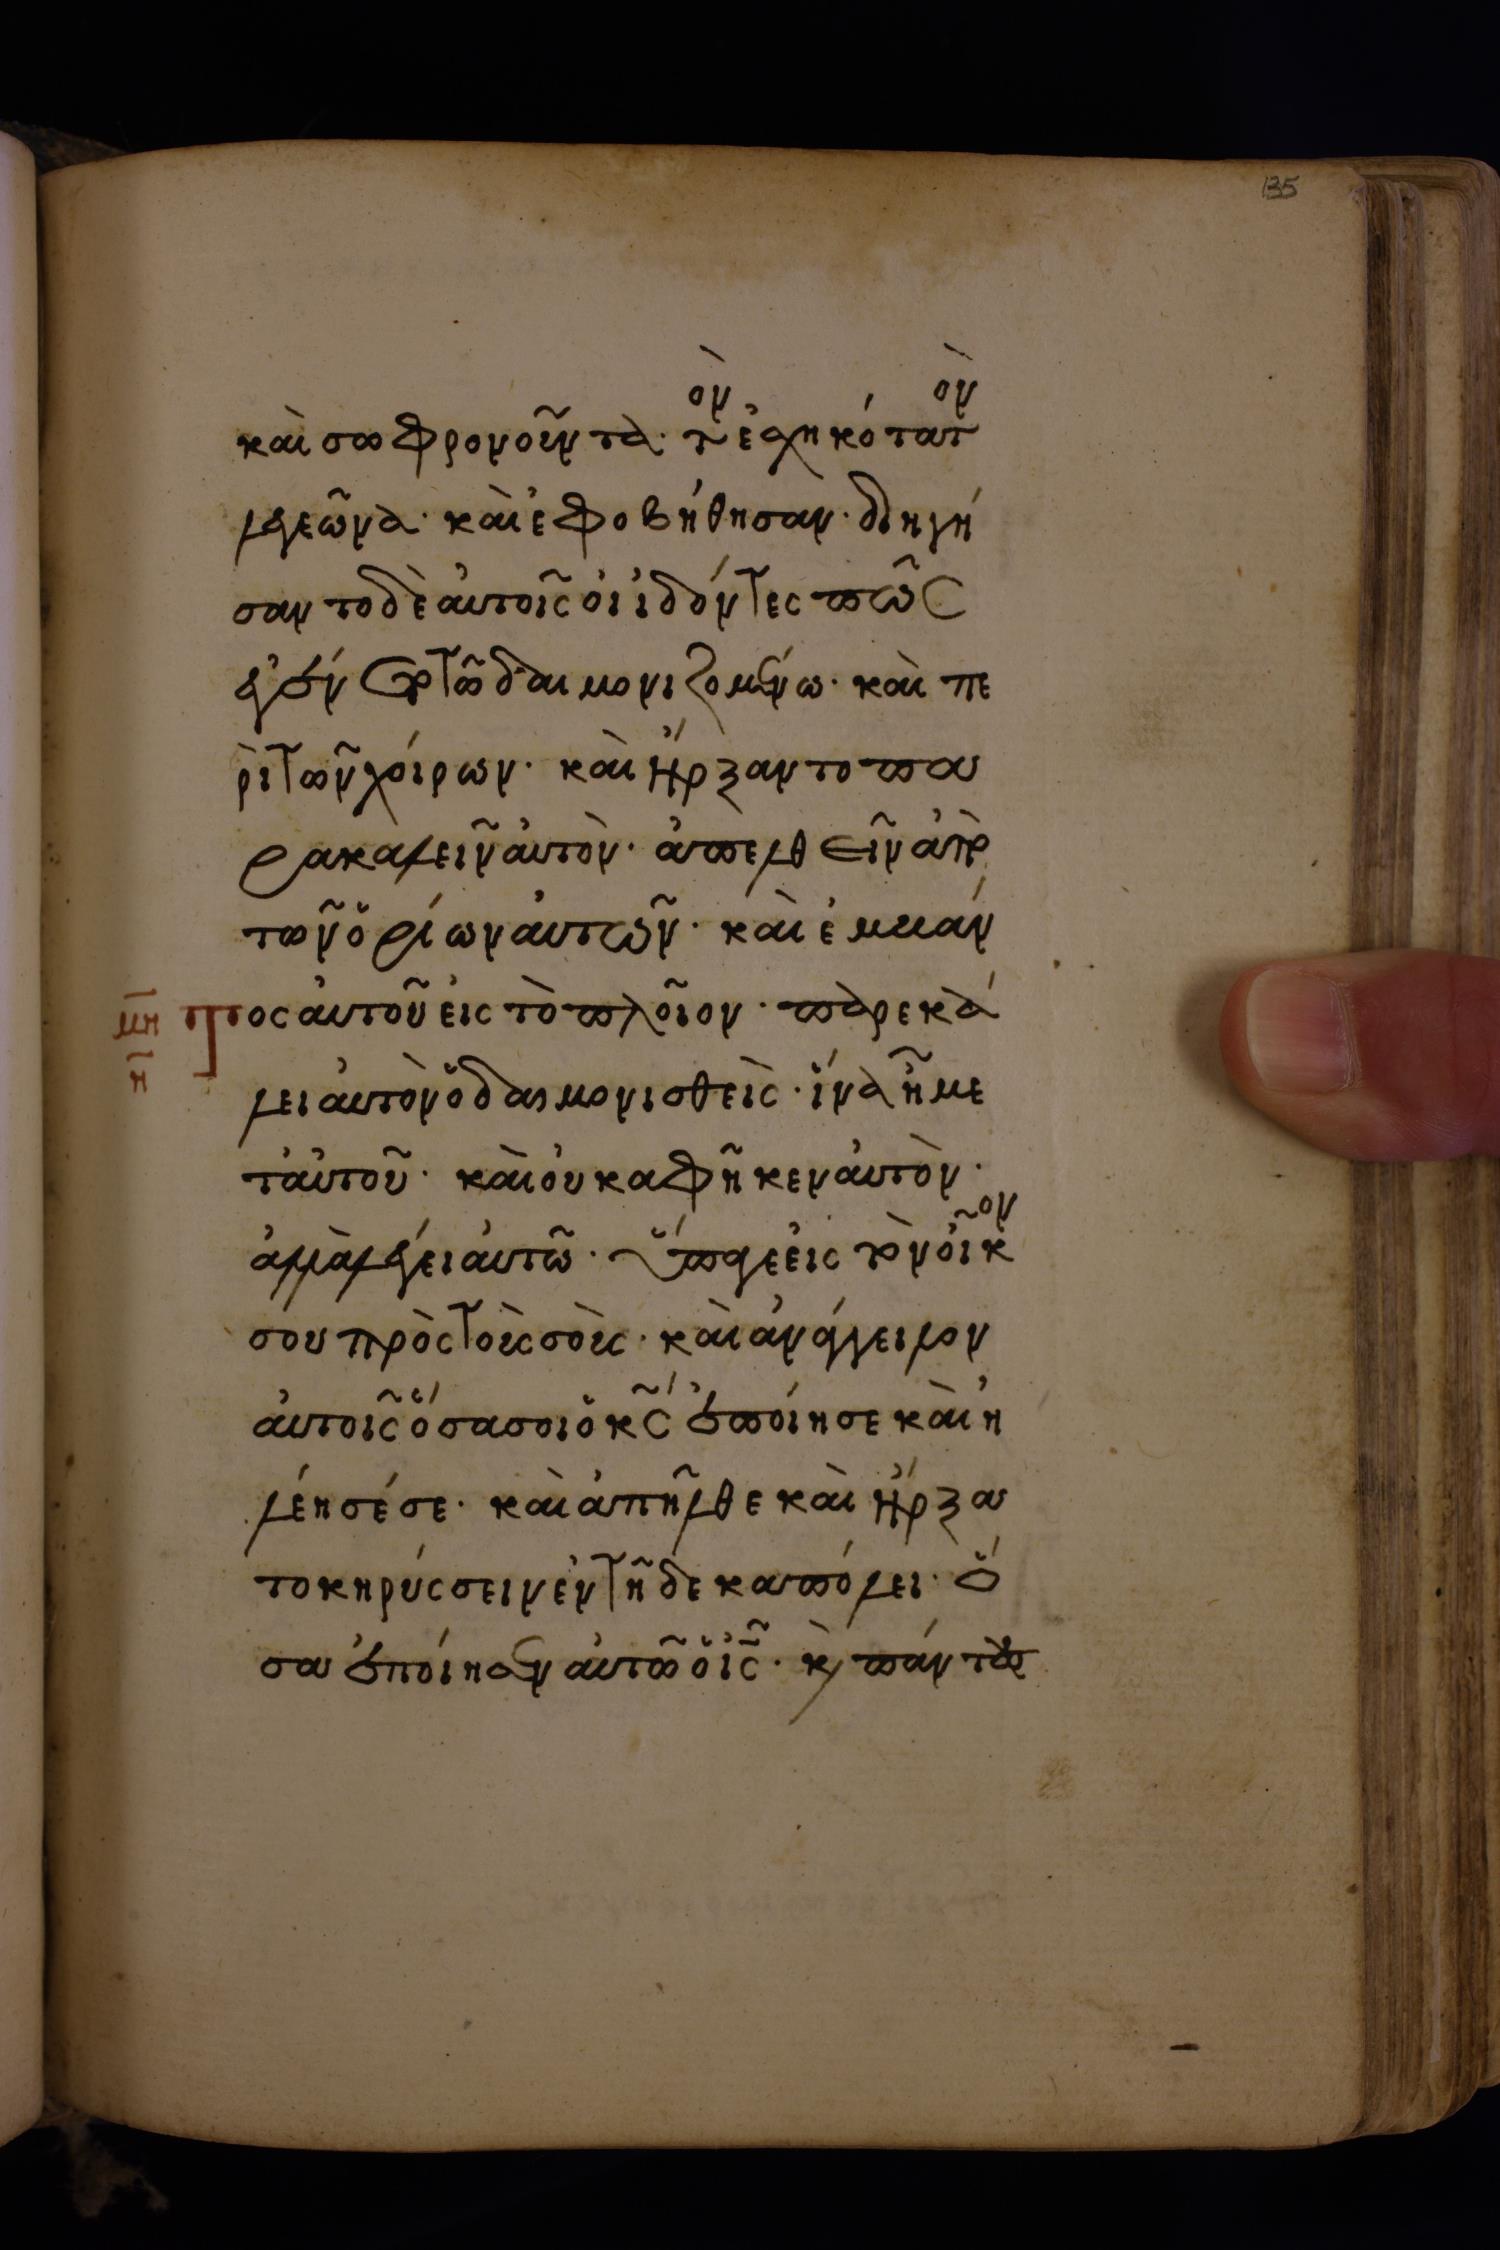 135
καὶ σωφρονοῦντα· τὸν ἐσχηκότα τὸν
λεγεῶνα· καὶ ἐφοβήθησαν· διηγή
σαντο δὲ αὐτοῖς οἱ ἰδόντες πῶς
ἐγένετο τῶ δαιμονιζομένω· καὶ πε
ρὶ τῶν χοίρων· καὶ ἤρξαντο πα
ρακαλεῖν αὐτὸν· ἀπελθεῖν ἀπὸ
τῶν ὁρίων αὐτῶν· καὶ ἐμβάν
τος αὐτοῦ εἰς τὸ πλοῖον· παρεκά
λει αὐτὸν ὁ δαιμονισθεὶς· ἵνα ἦ με
τ' αὐτοῦ· καὶ οὐκ ἀφῆκεν αὐτὸν·
ἀλλὰ λέγει αὐτῶ· ὕπαγε εἰς τὸν οἶκον
σου πρὸς τοὺς σοὺς· καὶ ἀνάγγειλον
αὐτοῖς ὅσα σοι ὁ κς ἐποίησε καὶ ἠ
λέησέ σε· καὶ ἀπῆλθε καὶ ἤρξα
το κηρύσσειν ἐν τῆ δεκαπόλει· ὅ
σα ἐποίησεν αὐτῶ ὁ ις· κ πάντες